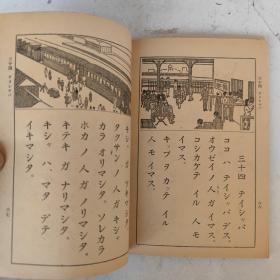 三十四 テイシャバ
ココ ハ テイシャバ デス。
オウゼイ ノ 人 ガ イマス。
コシカケテ イル 人 モ
イマス。
キップ ヲ カッテ イル
人 モ イマス。
タクサン ノ 人 ガ キシャ
カラ オリマシタ。ソレカラ
ホカ ノ 人 ガ ノリマシタ。
キテキ ガ ナリマシタ。
キシャ ハ、マタ デテ
イキマシタ。